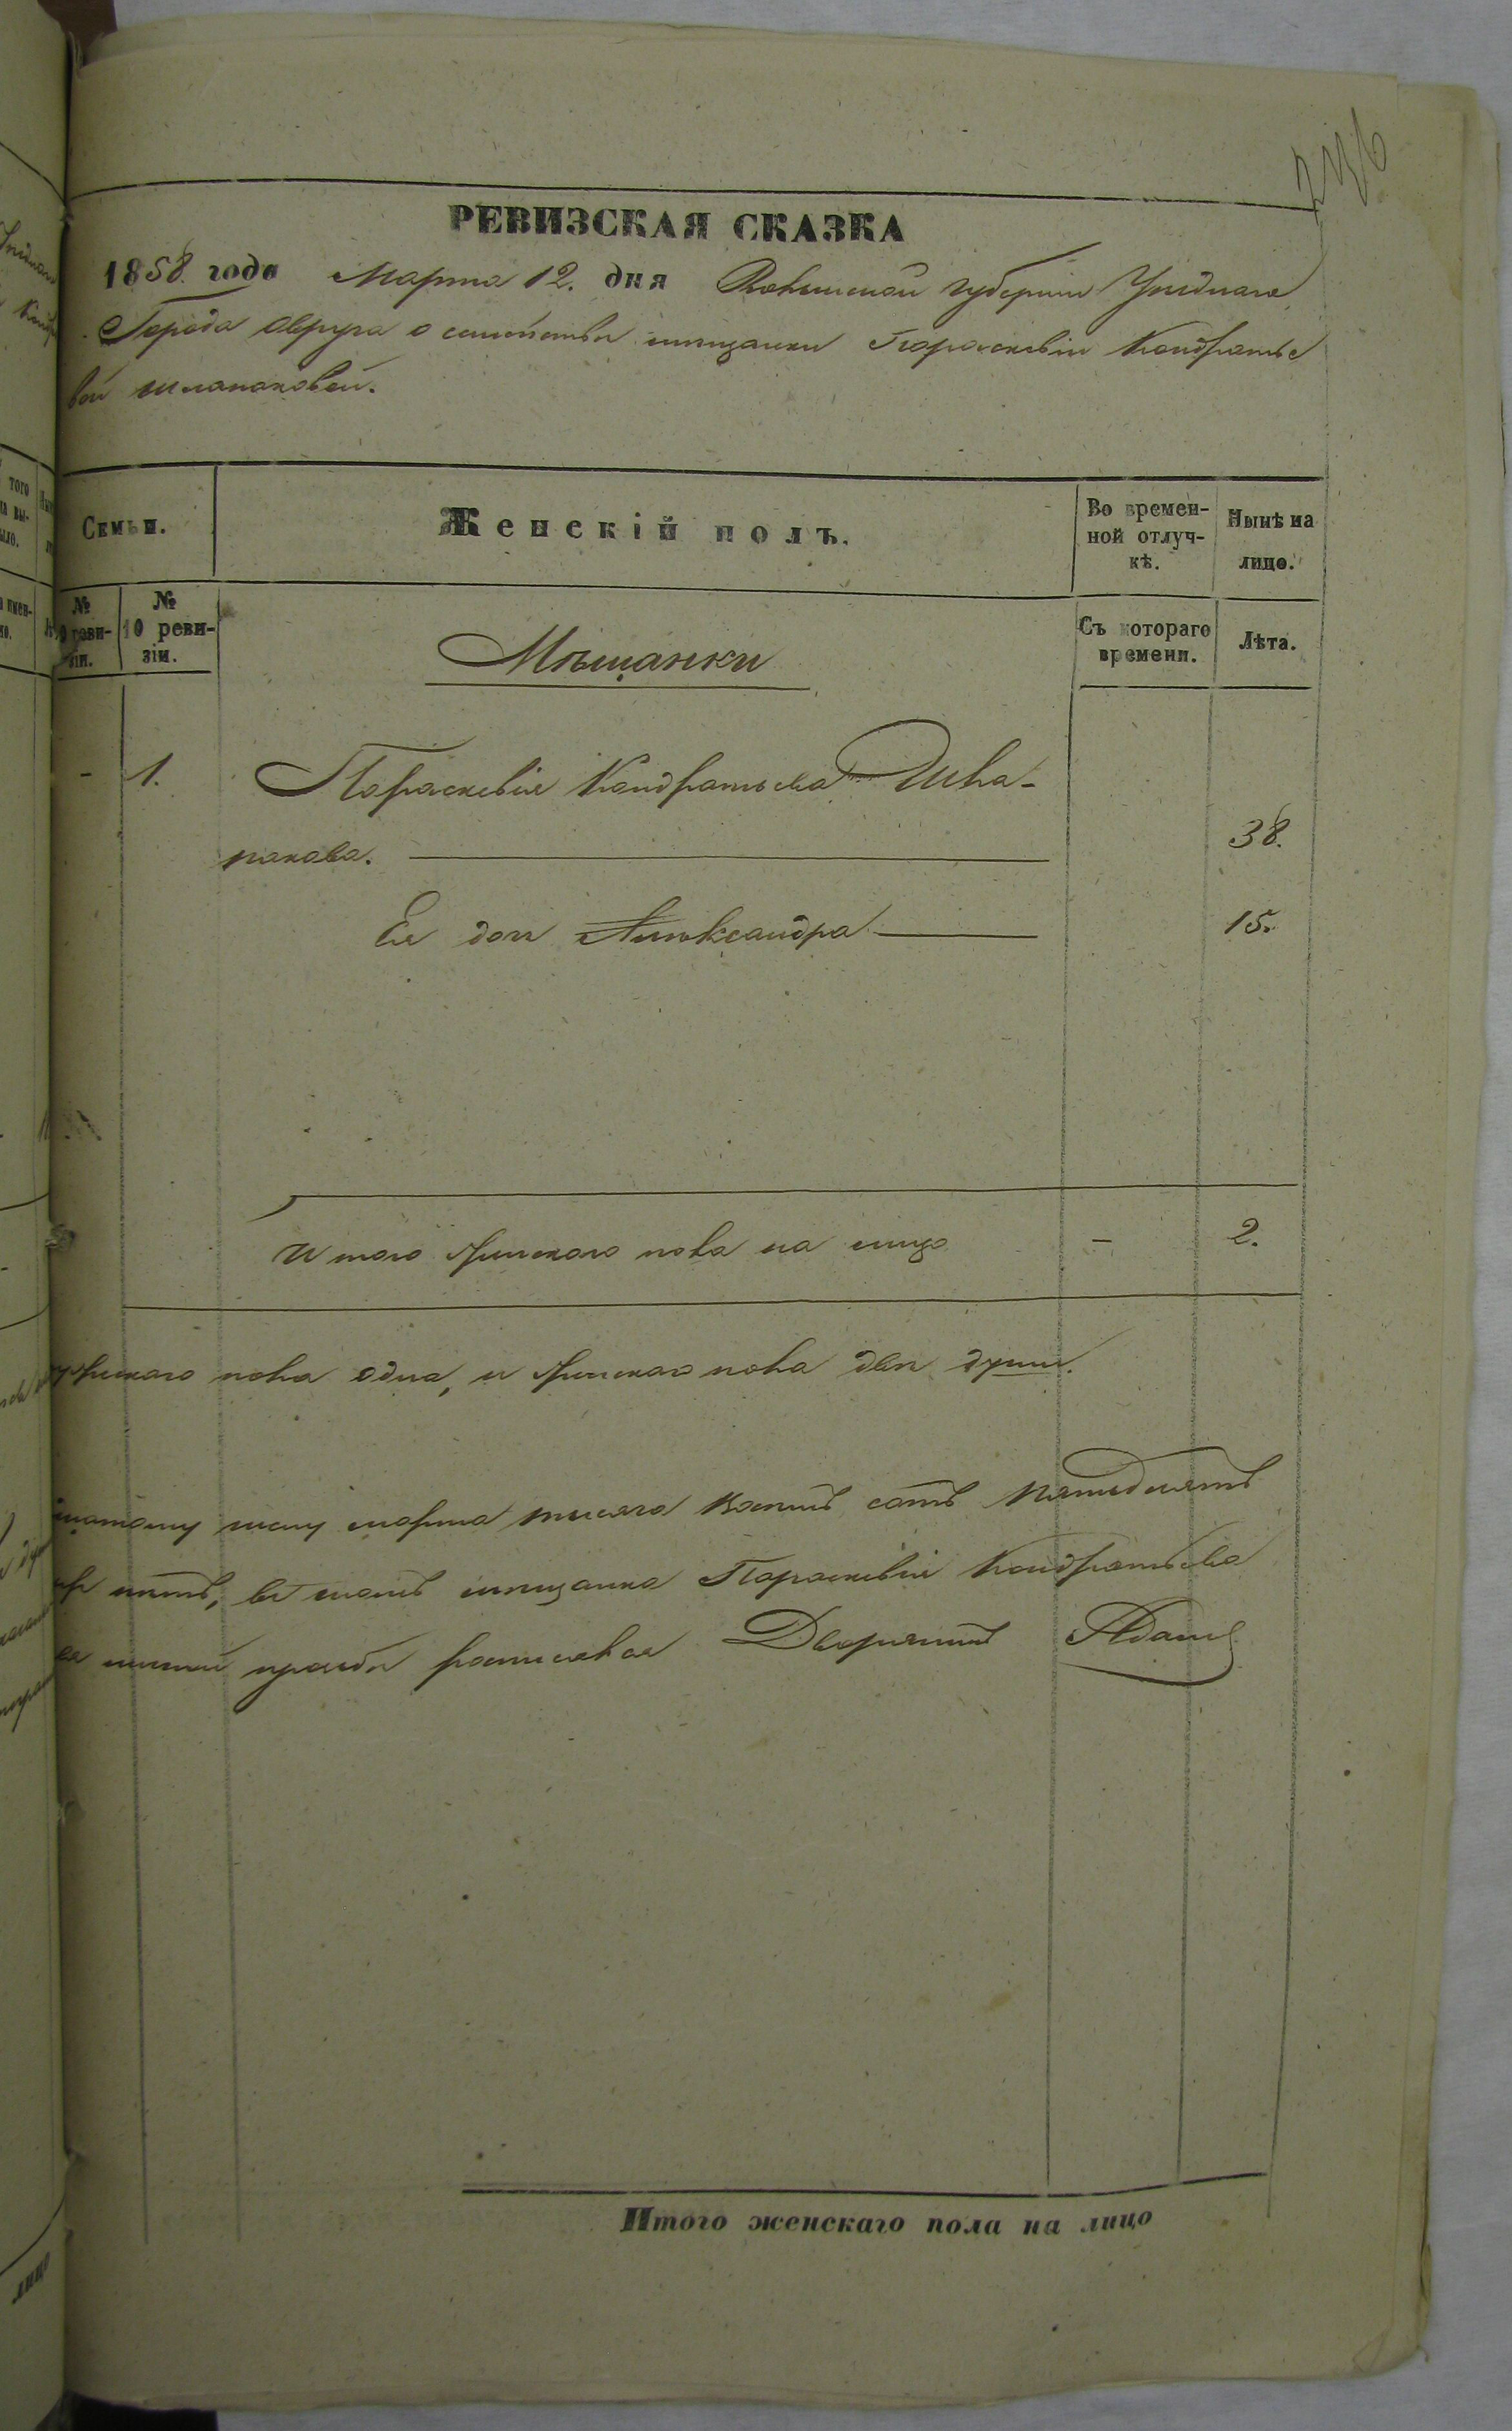 236
РЕВИЗСКАЯ СКАЗКА
1858. года Марта 12. дня Волынской губернiи Уѣзднаго
Города Овруча о семействѣ мѣщанки Параскевiи Кондратье
вой
Семьи.
Женскiй полъ.
Во времен-
ной отлуч-
кѣ.
Нынѣ на
лицо.
№
9 реви-
зiи.
№
10 реви-
зiи.
Мѣщанки
Съ котораго
времени.
Лѣта.
- 1. Параскевiя Кондратьева Шка-
пакова. 38.
Ея доч Александра 15.
Итого женскаго пола на лицо - 2.
мужескаго пола одна, и женскаго пола двѣ души.
числу марта тысяча восемъ сотъ пятьдесятъ
мѣщанка Параскевiя Кондратьева
просьбѣ росписался Дворянинъ Адамъ
Итого женскаго пола на лицо